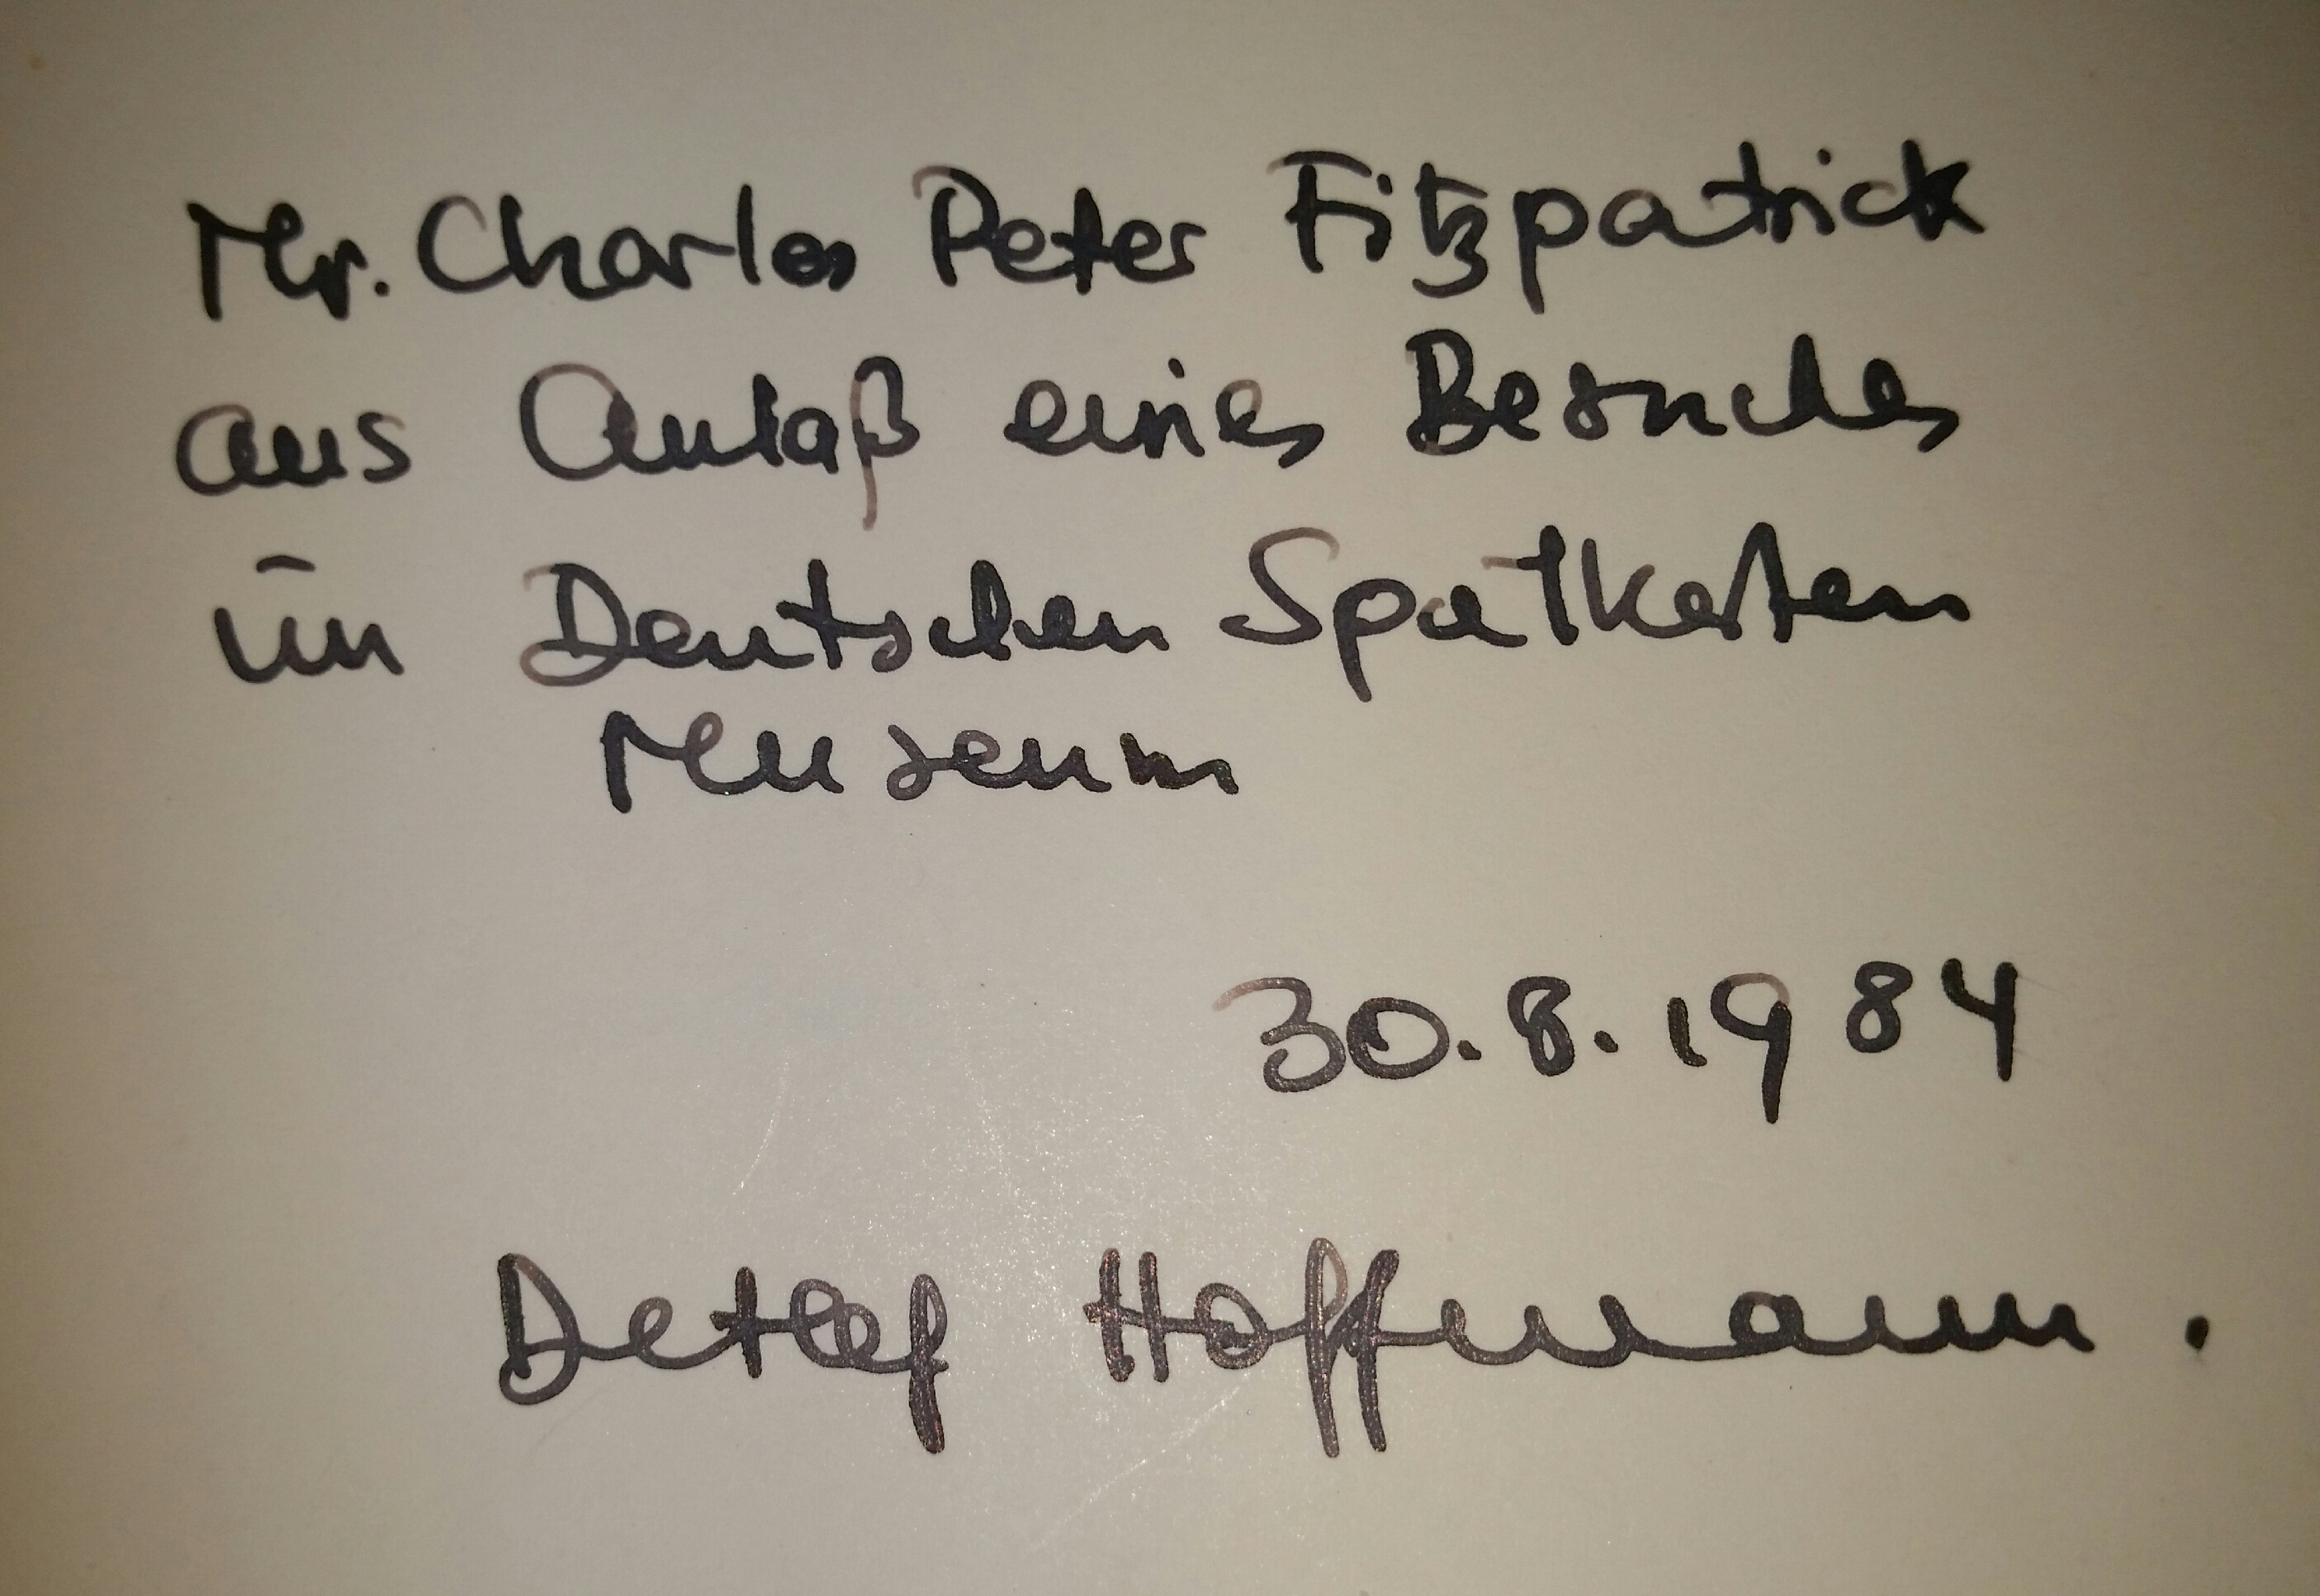 Mr. Charles Peter Fitzpatrick
aus Anlaß eines Besuches
im Deutschen Spielkarten
Museum
30.8.1984
Detlef Hoffmann.